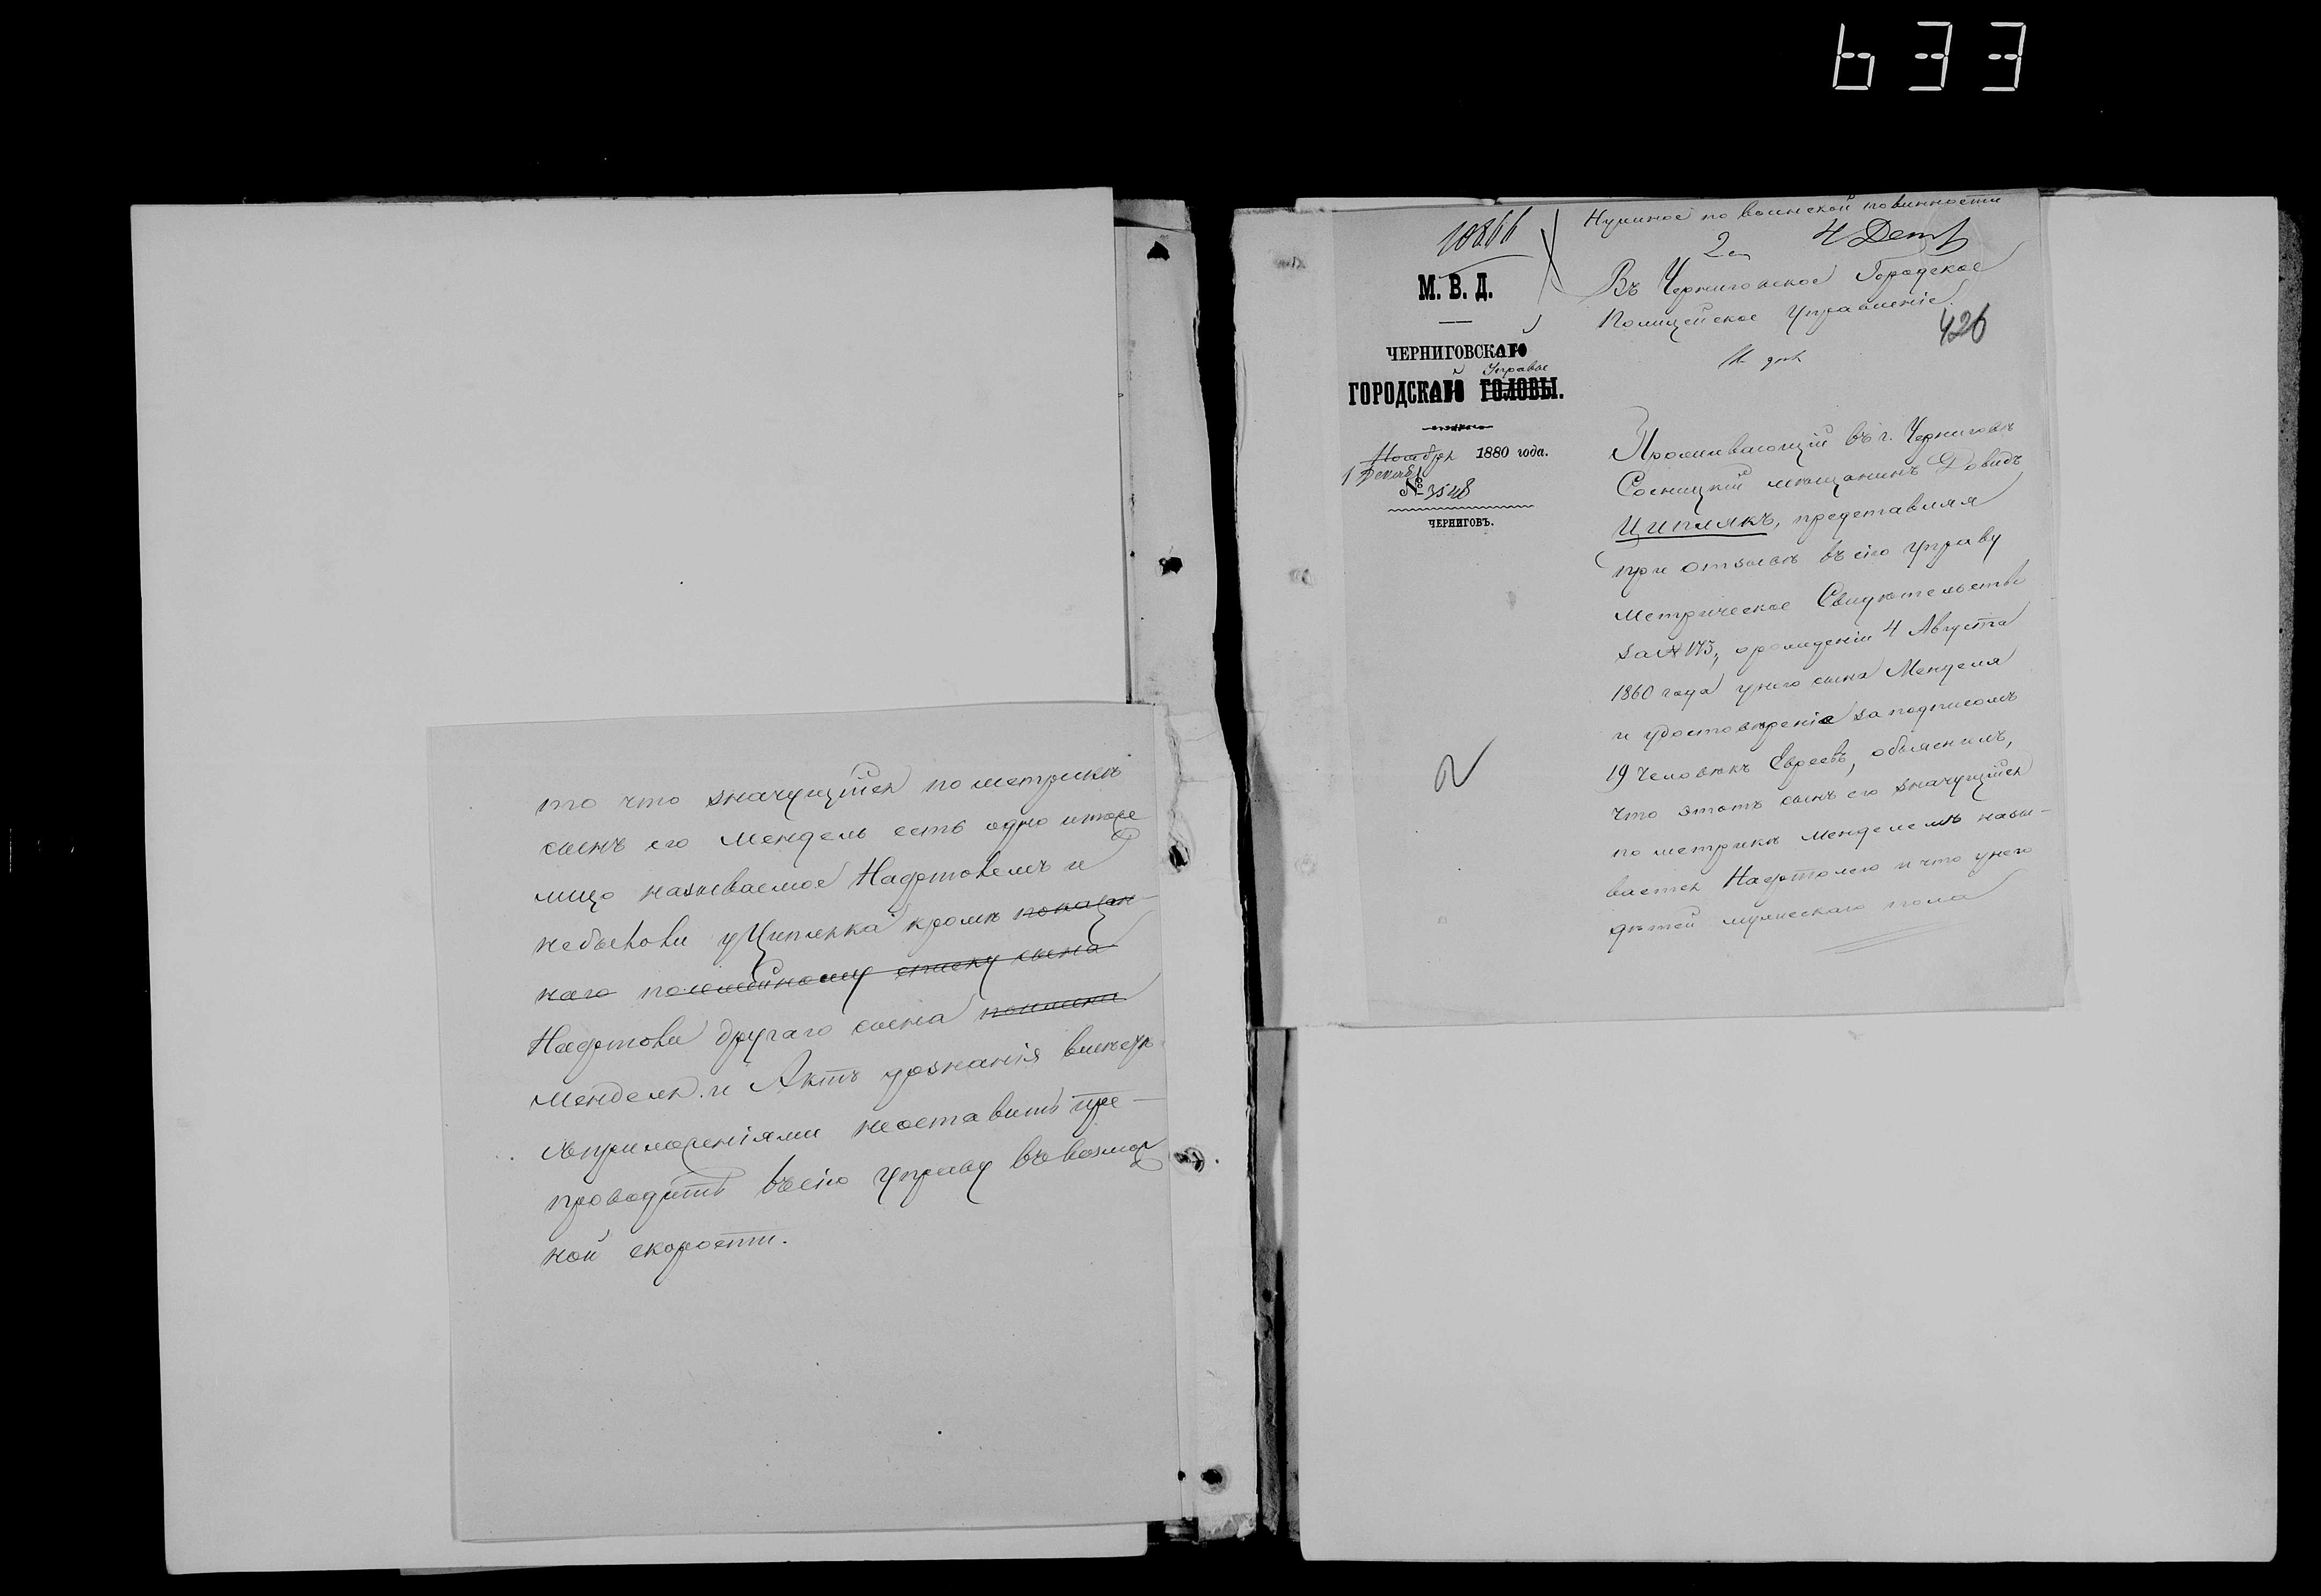 633
то что значущійся по метрикѣ
сынъ его Мендель есть одно и тоже
лицо называемое Нафтолемъ и
небылоли у Ципляка кромѣ показан-
наго посемейному списку сына
Нафтоли другаго сына поимени
Менделя. и Актъ дознанія вмѣстѣ
съ приложеніями неоставить пре-
проводить въ сію Управу въ возмож
ной скорости.
10866
Нужное по воинской повинности
2 ст 4 Дек
М. В. Д.
ЧЕРНИГОВСКАГО
Й Управы
ГОРОДСКАГО ГОЛОВЫ.
Ноября 1880 года.
1 Декабр
№ 3528
ЧЕРНИГОВЪ.
Въ Черниговское Городское
Полицейское Управленіе.
426
Проживающій въ г. Черниговѣ
Сосницкій мѣщанинъ Довидъ
Циплякъ, представляя
при отзывѣ въ сію Управу
метрическое Свидѣтельство
за № 173, о рожденіи 4 Августа
1860 года у него сына Менделя
и удостовѣреніе за подписомъ
19 человѣкъ Евреевъ, объяснилъ,
что этотъ сынъ его значущійся
по метрикѣ Менделемъ назы-
вается Нафтолею и что у него
дѣтей мужескаго пола